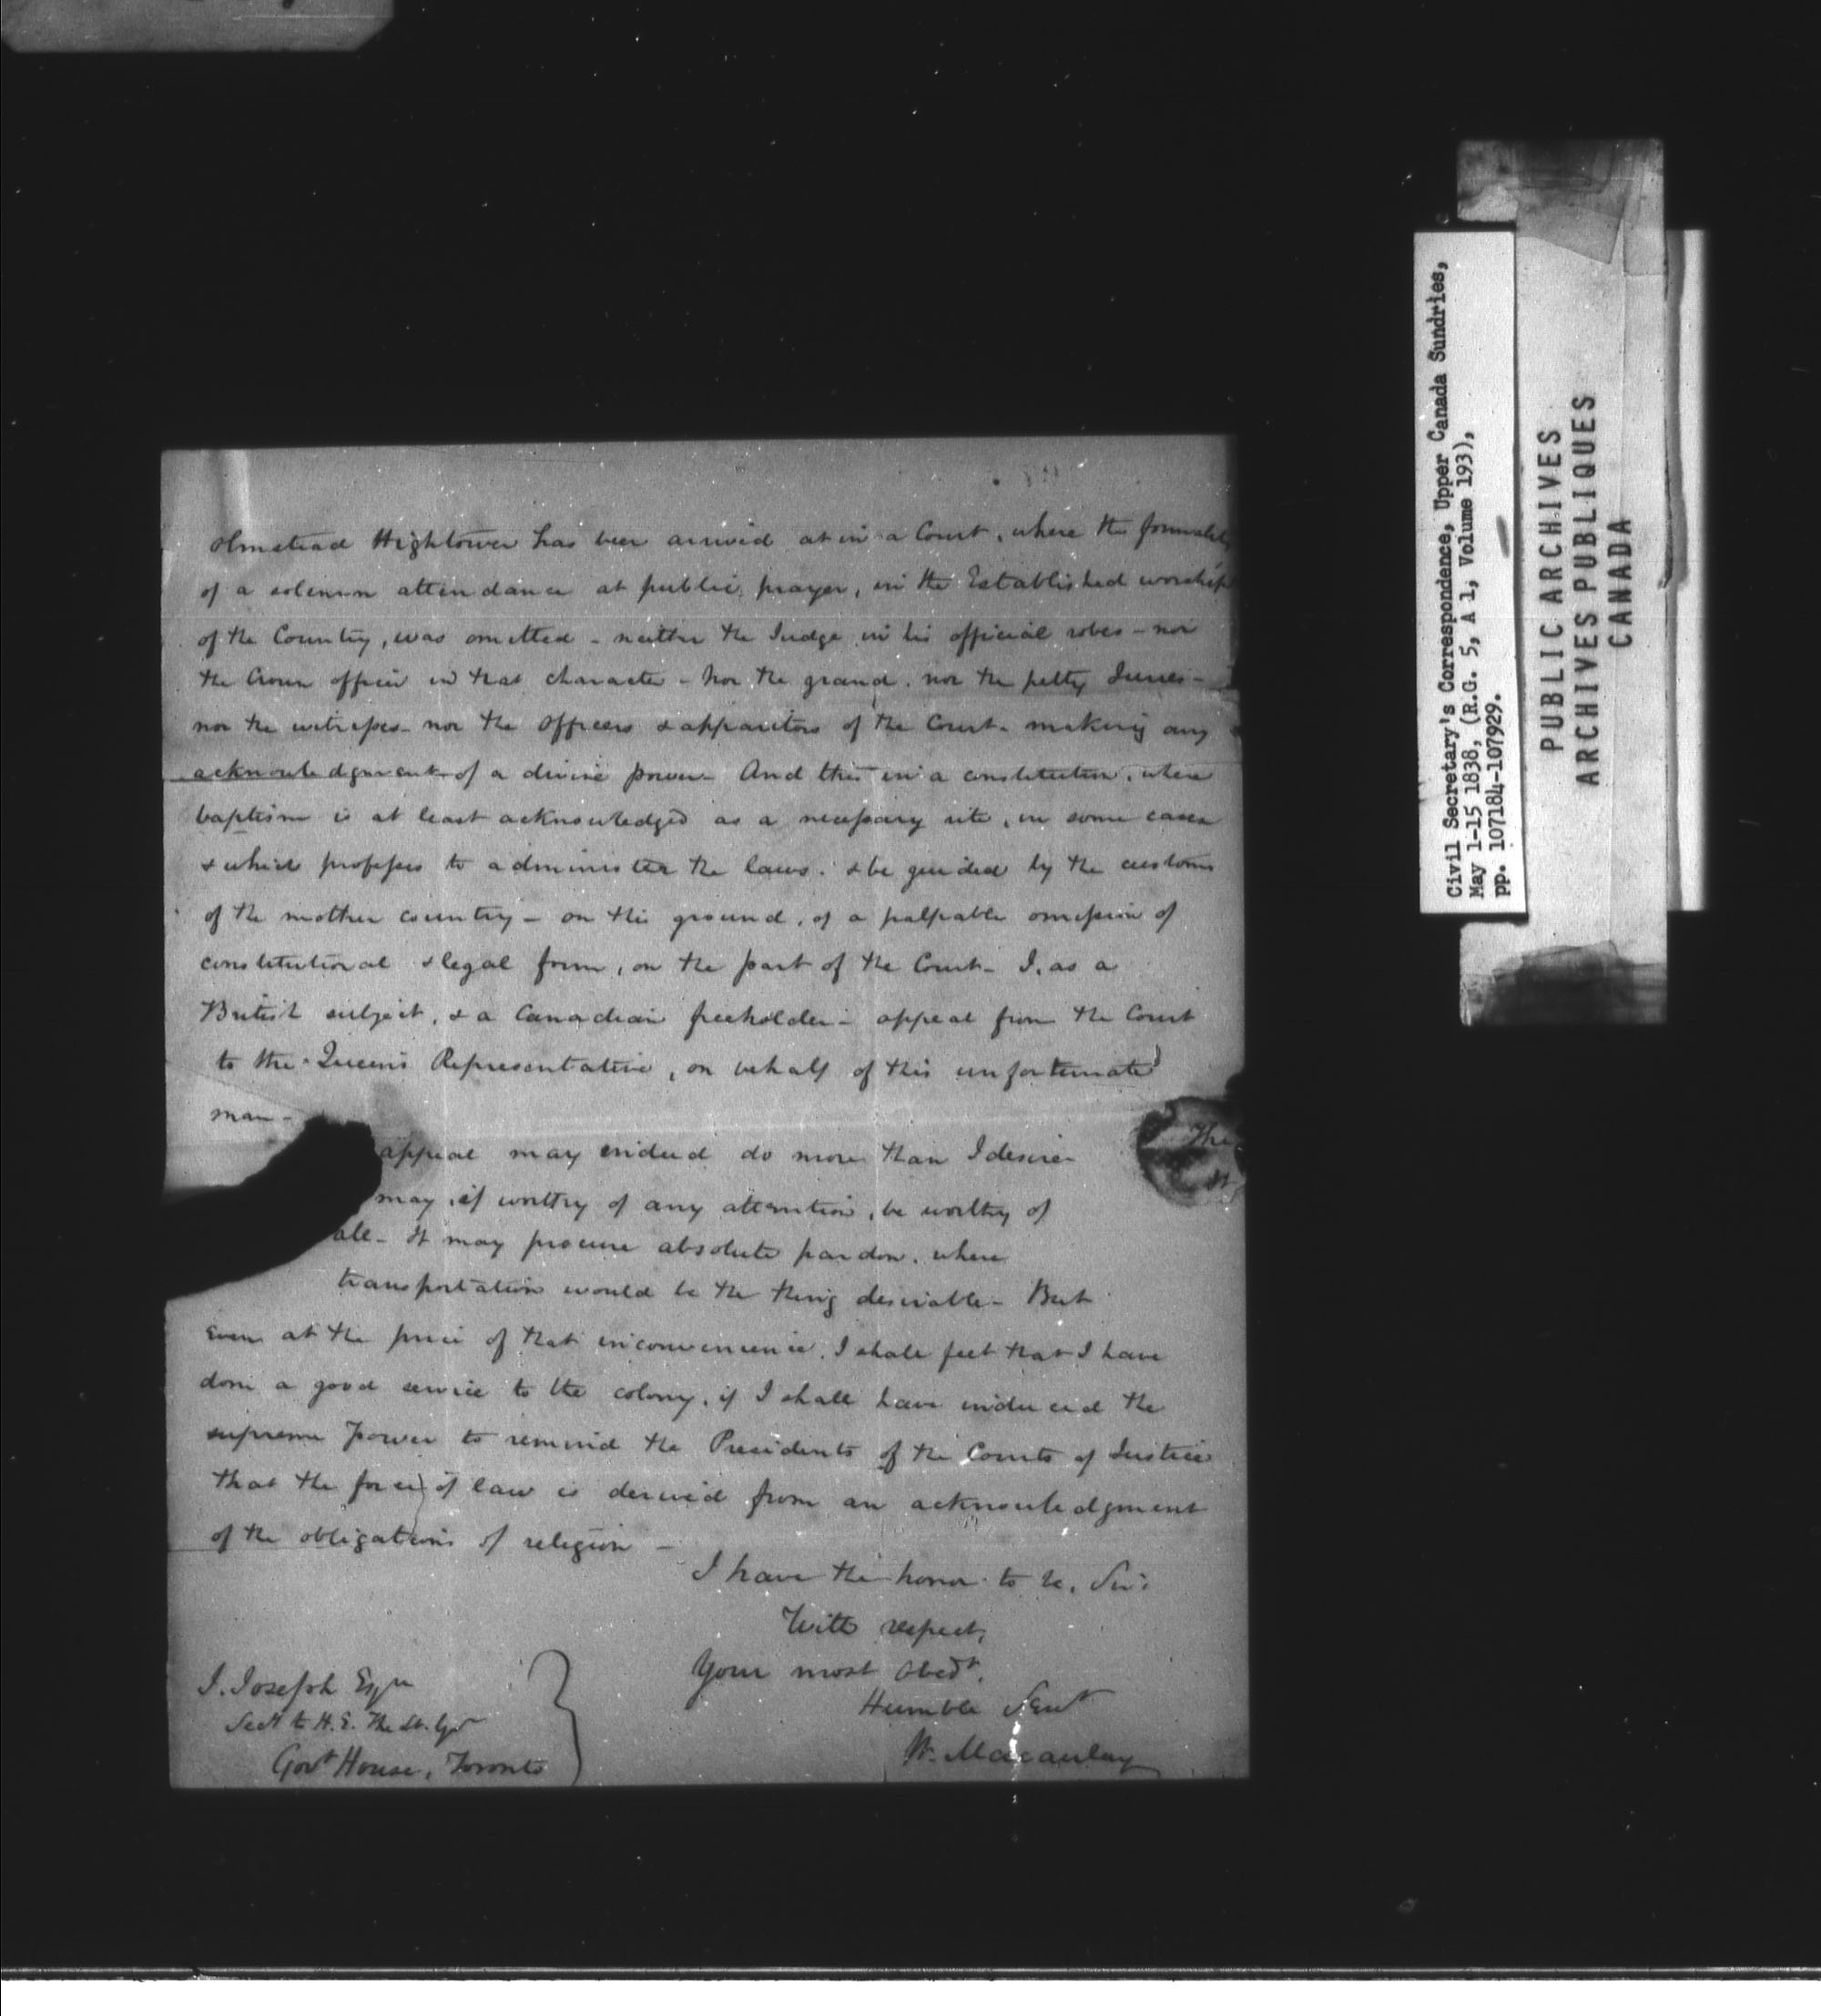 Olmstead Hightower has been arrived at in a Court, where the formality
of a solemn attendance at public prayer, in the Established worship
of the Country, was omitted - neither the Judge in his official robes - nor
the Crown officer in that character - Nor the grand, nor the petty Juries -
nor the witnesses - nor the officers & apparitors of the Court - making any
acknowledgment of a divine power - And this in a constitution, where
baptism is at least acknowledged as a necessary rite, in some cases
& which professes to administer the laws, & be guided by the customs
of the mother country - on this ground, of a palpable omission of
constitutional & legal form, on the part of the Court - I, as a
British subject, & a Canadian freeholder - appeal from the Court
to the Queen's Representative, on behalf of this unfortunate
man -
appeal may indeed do more than I desire -
may, if worthy of any attention, be worthy of
It may procure absolute pardon, where
transportation would be the thing desirable - But
even at the price of that inconvenience, I shall feel that I have
done a good service to the colony, if I shall have induced the
supreme Power to remind the Presidents of the Courts of Justice
that the force of law is derived from an acknowledgment
of the obligations of religion -
I have the honor to be, Sir,
With respect,
Your most Obedt.
Humble Servt
W. Macaulay
J. Joseph Esqr
Secy to H. E. The Lt. Govr
Govt House, Toronto
The
Civil Secretary's Correspondence, Upper Canada Sundries,
May 1-15 1838, (R.G. 5, A 1, Volume 193),
pp. 107184-107929.
PUBLIC ARCHIVES
ARCHIVES PUBLIQUES
CANADA